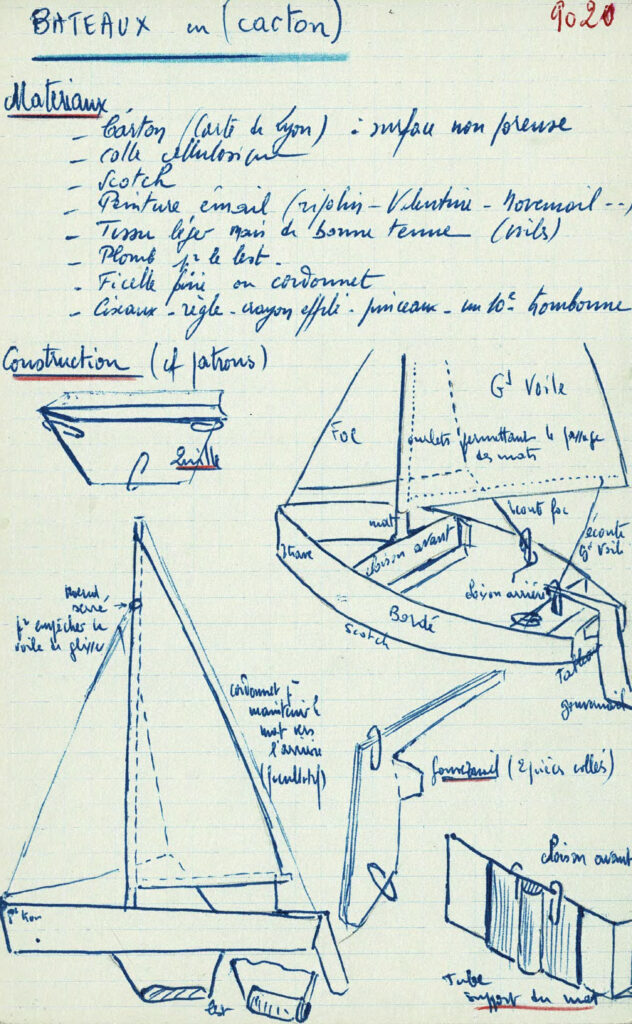 BATEAUX en (carton)
9020
Matériaux
- Carton (Carte de Lyon) : surface non poreuse
- colle cellulosique
- Scotch
- Peinture émail (ripolin - Valentine - Novemail --)
- Tissu léger mais de bonne tenue (voils)
- Plomb pr le lest.
- Ficelle fine ou cordonnet
- Ciseaux - règle - crayon effilé - pinceaux - un 10e trombonne
Construction (cf patrons)
Quille
Foc
Gd Voile
ourlets permettant le passage
des mats
mat
écoute foc
écoute
gd voil
Etrave
Cloison avant
Cloison arrière
Bordé
Scotch
Tableau
gouvernail
noeud
serré
pr empêcher la
voile de glisser
cordonnet pr
maintenir le
mat vers
l'arrière
gouvernail (2 pièces collés)
lest
Cloison avant
Tube
support du mat